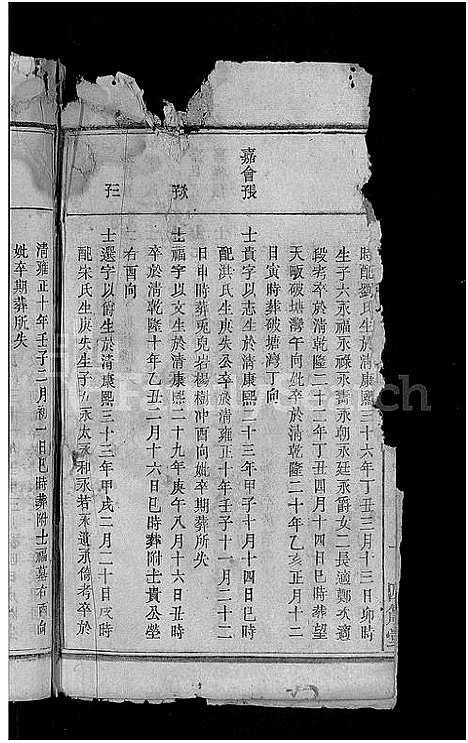 時配劉氏生於清康熙三十六年丁丑三月十三日卯時
生子六永福永祿永壽永朝永廷永爵女二長適鄭次適
段考卒於清乾隆二十二年丁丑四月十四日巳時葬望
天畈破塘灣午向妣卒於清乾隆二十年乙亥正月十二
日寅時葬破塘灣丁向
嘉會孫
士貴字以志生於清康熙二十三年甲子十月十四日巳時
配洪氏生庚失公卒於清雍正十年壬子十一月二十二
日申時葬兎兒岩楊樹冲酉向妣卒期葬所失
士福字以文生於清康熙二十九年庚午八月十六日丑時
卒於清乾隆十年乙丑二月十六日巳時葬附士貴公塋
右酉向
士選字以爵生於清康熙三十三年甲戌二月二十日戌時
配宋氏生庚失生子五永太永和永若永道永倫考卒於
清雍正十年壬子二月初一日巳時葬附士福墓右酉向
妣卒期葬所失